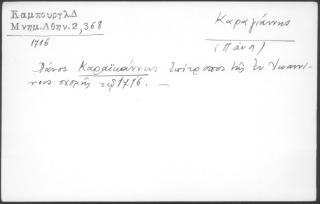 Καμπουργλ Δ
Μνημ.Αθην.2,368
1716
Καραγιάννης
(Πάνος)
Πάνος Καραϊωάννης ἐπίτροπος τῆς ἐν Ἰωαννί-
νοις σχολῆς τῷ 1716. —